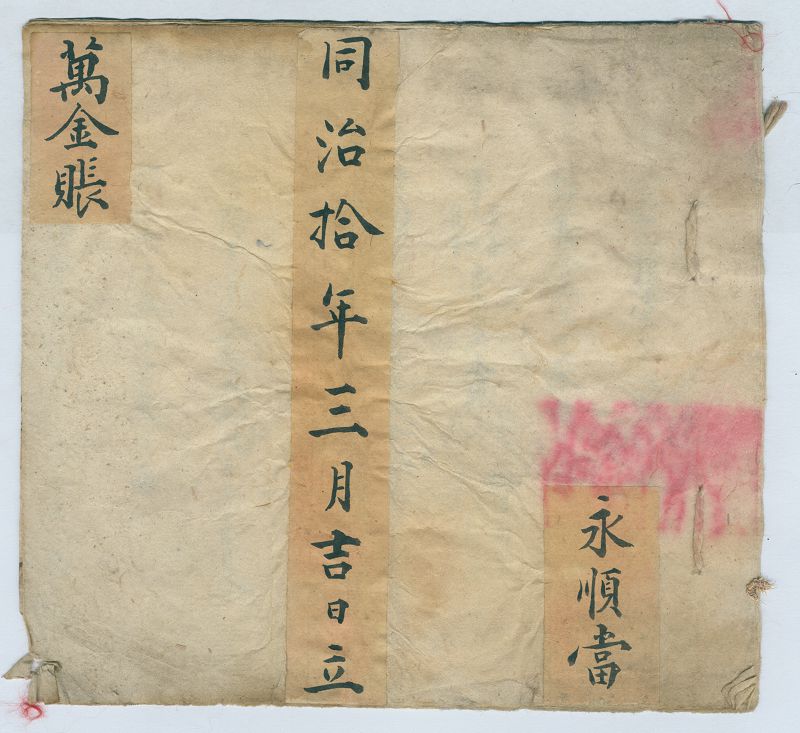 永順當
同治拾年三月吉日立
萬金賬